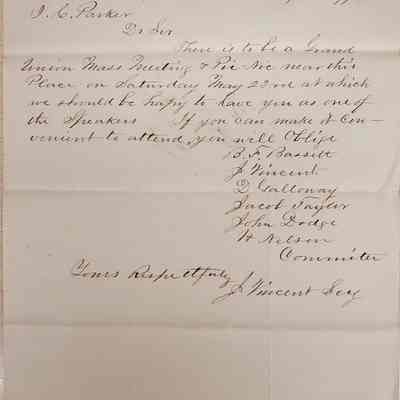 I. C. Parker
Dr Sir
There is to be a Grand
Union Mass Meeting & Pic Nic near this
Place, on Saturday May 23rd at which
we should be happy to have you as one of
the Speakers If you can make it con-
venient to attend, you will Oblige
B. F. Bassett
J Vincent
D Galloway
Jacob Taylor
John Dodge
H Nelson
Commitee
Yours Respectfuly
J. Vincent Secy